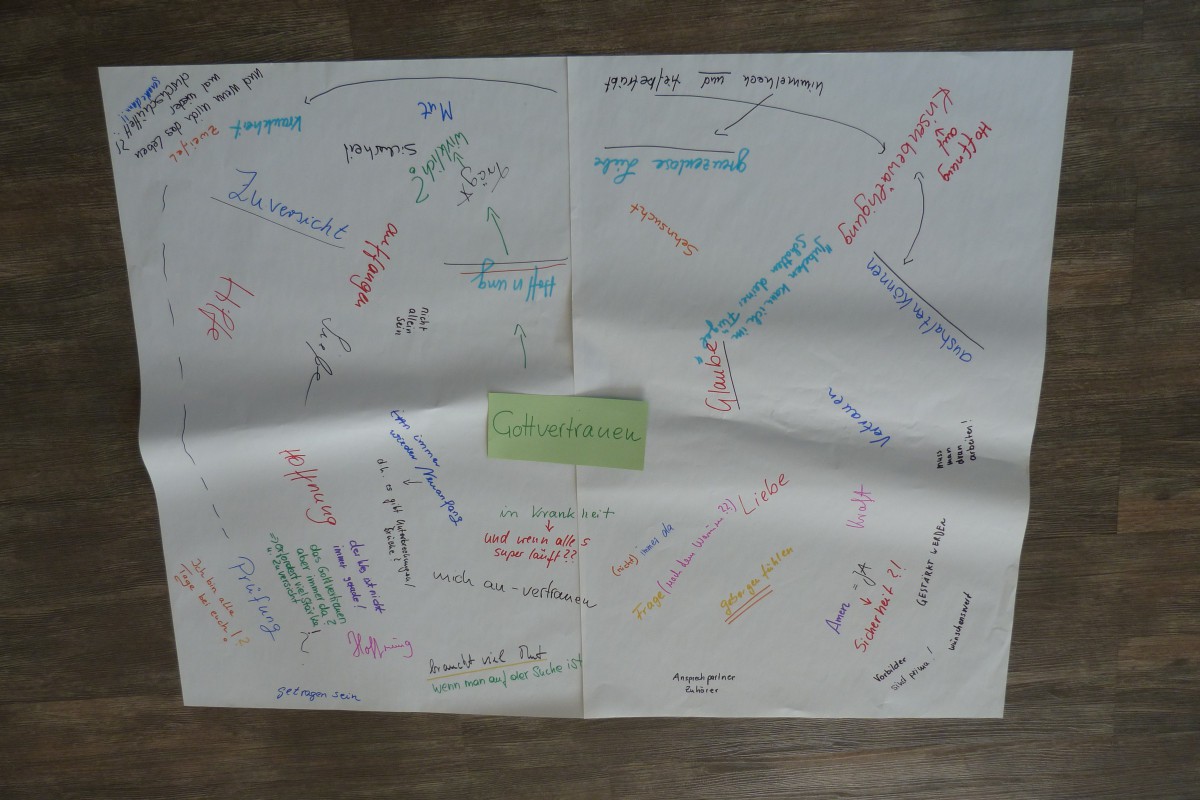 Gottvertrauen
Und wenn mich das Leben
mal wieder
durchschüttelt?!
Zweifel
Krankheit
Mut
Sicherheit
wirklich?
trägt
Zuversicht
auffangen
Hoffnung
Hilfe
Liebe
nicht
allein
sein
himmelhoch und tiefbetrübt
grenzenlose Liebe
Sehnsucht
Hoffnung
auf
Krisenbewältigung
aushalten können
Jubeln kann ich im
Schatten deiner Flügel
Glaube
Vertrauen
muss
man
dran
arbeiten!
Hoffnung
immer
wieder Neuanfang
d.h. es gibt Unterbrechungen,
Brüche?
in Krankheit
und wenn alles
super läuft??
mich an-vertrauen
der Weg ist nicht
immer gerade!
das Gottvertrauen
aber immer da?
erfordert viel Stärke
u. Zuversicht
Prüfung
Ich bin alle
Tage bei euch
!?
Hoffnung
getragen sein
braucht viel Mut
wenn man auf der Suche ist
Liebe
(nicht) immer da
Frage (nach dem Warum??)
geborgen fühlen
Kraft
Amen = JA
Sicherheit?!
GESTÄRKT WERDEN
wünschenswert
Vorbilder
sind prima!
Ansprechpartner
Zuhörer